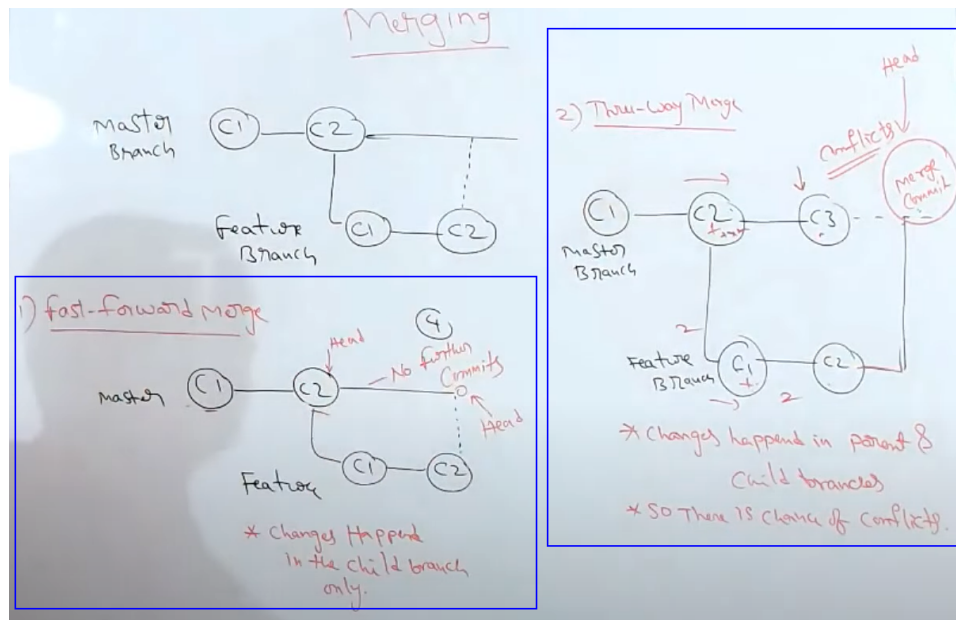 Merging
Master
Branch
C1
C2
Feature
Branch
C1
C2
1) Fast-Forward Merge
Head
4
No Further
Commits
Master
C1
C2
Head
Feature
C1
C2
* Changes Happend
in the child branch
only.
2) Three-way Merge
Head
Conflicts
Merge
Commit
C1
C2
C3
Master
Branch
2
Feature
Branch
C1
C2
2
* Changes happend in parent &
Child branches
* SO There is chance of conflicts.